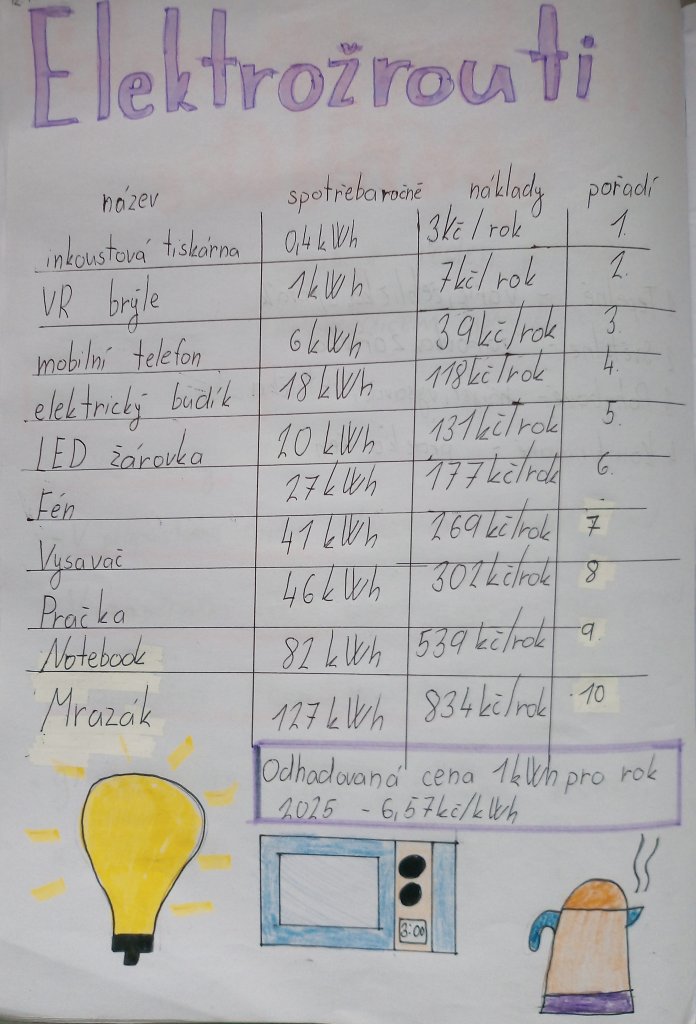 Elektrožrouti
název spotřebaročně náklady pořadí
inkoustová tiskárna 0,4 kWh 3kč/rok 1.
VR brýle 1kWh 7kč/rok 2.
mobilní telefon 6kWh 39kč/rok 3.
elektrický budík 18kWh 118kč/rok 4.
LED žárovka 20kWh 131kč/rok 5.
Fén 27kWh 177kč/rok 6.
Vysavač 41kWh 269kč/rok 7
Pračka 46kWh 302kč/rok 8
Notebook 82kWh 539kč/rok 9.
Mrazák 127kWh 834kč/rok 10
Odhadovaná cena 1kWh pro rok
2025 - 6,57kč/kWh
3:00